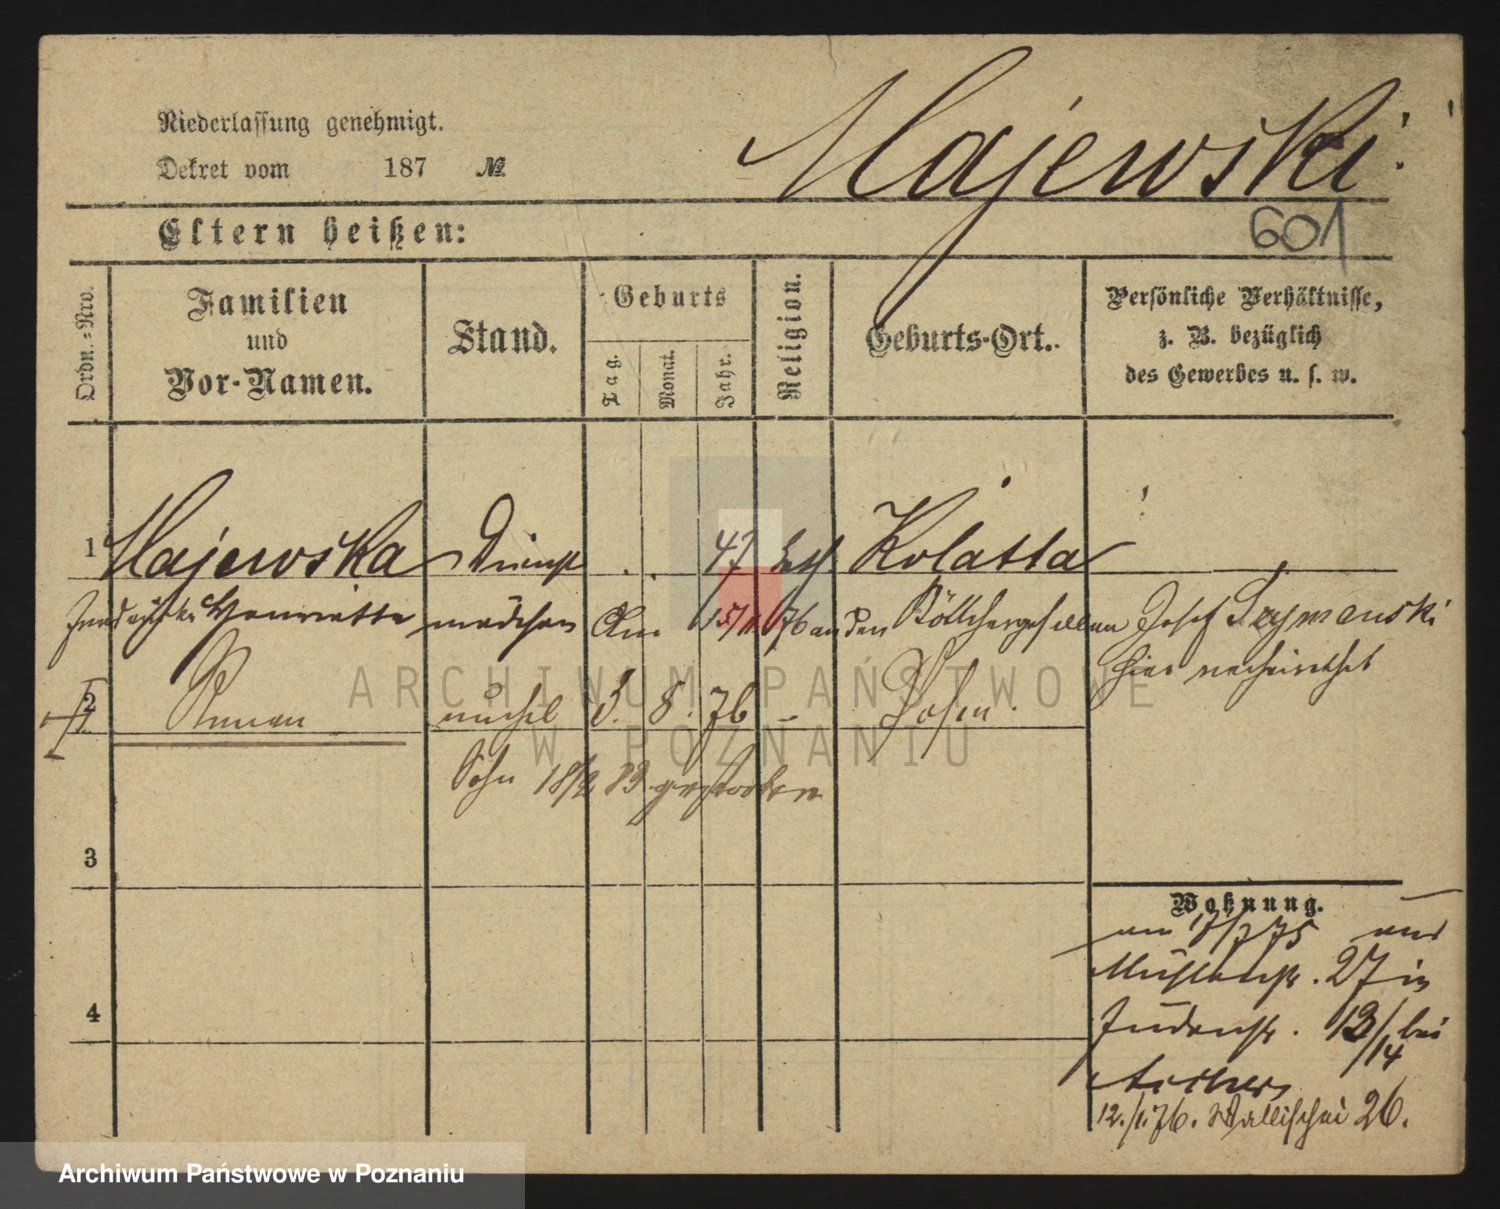 Niederlassung genehmigt.
Dekret vom 187 №
Majewski
601
Eltern heißen:
Ordn.-Nro.
Familien
und
Vor-Namen.
Stand.
Geburts
Tag.
Monat.
Jahr.
Religion.
Geburts-Ort.
Persönliche Verhältnisse,
z. B. bezüglich
des Gewerbes u. s. w.
1 Majewska Dienst 47 kath Kolatka
Henriette mädchen Am 15/11 76 an den Böttchergesellen Josef Szymanski
hier verheirathet
2 Roman unehel 3. 8. 76 – Posen.
Sohn 18/2 83 gestorben
3
4
Wohnung.
am 17/7 75 aus
Mühlenstr. 27 in
Judenstr. 13/14 bei
12./1.76. Wallischei 26.
ARCHIWUM PAŃSTWOWE
W POZNANIU
Archiwum Państwowe w Poznaniu